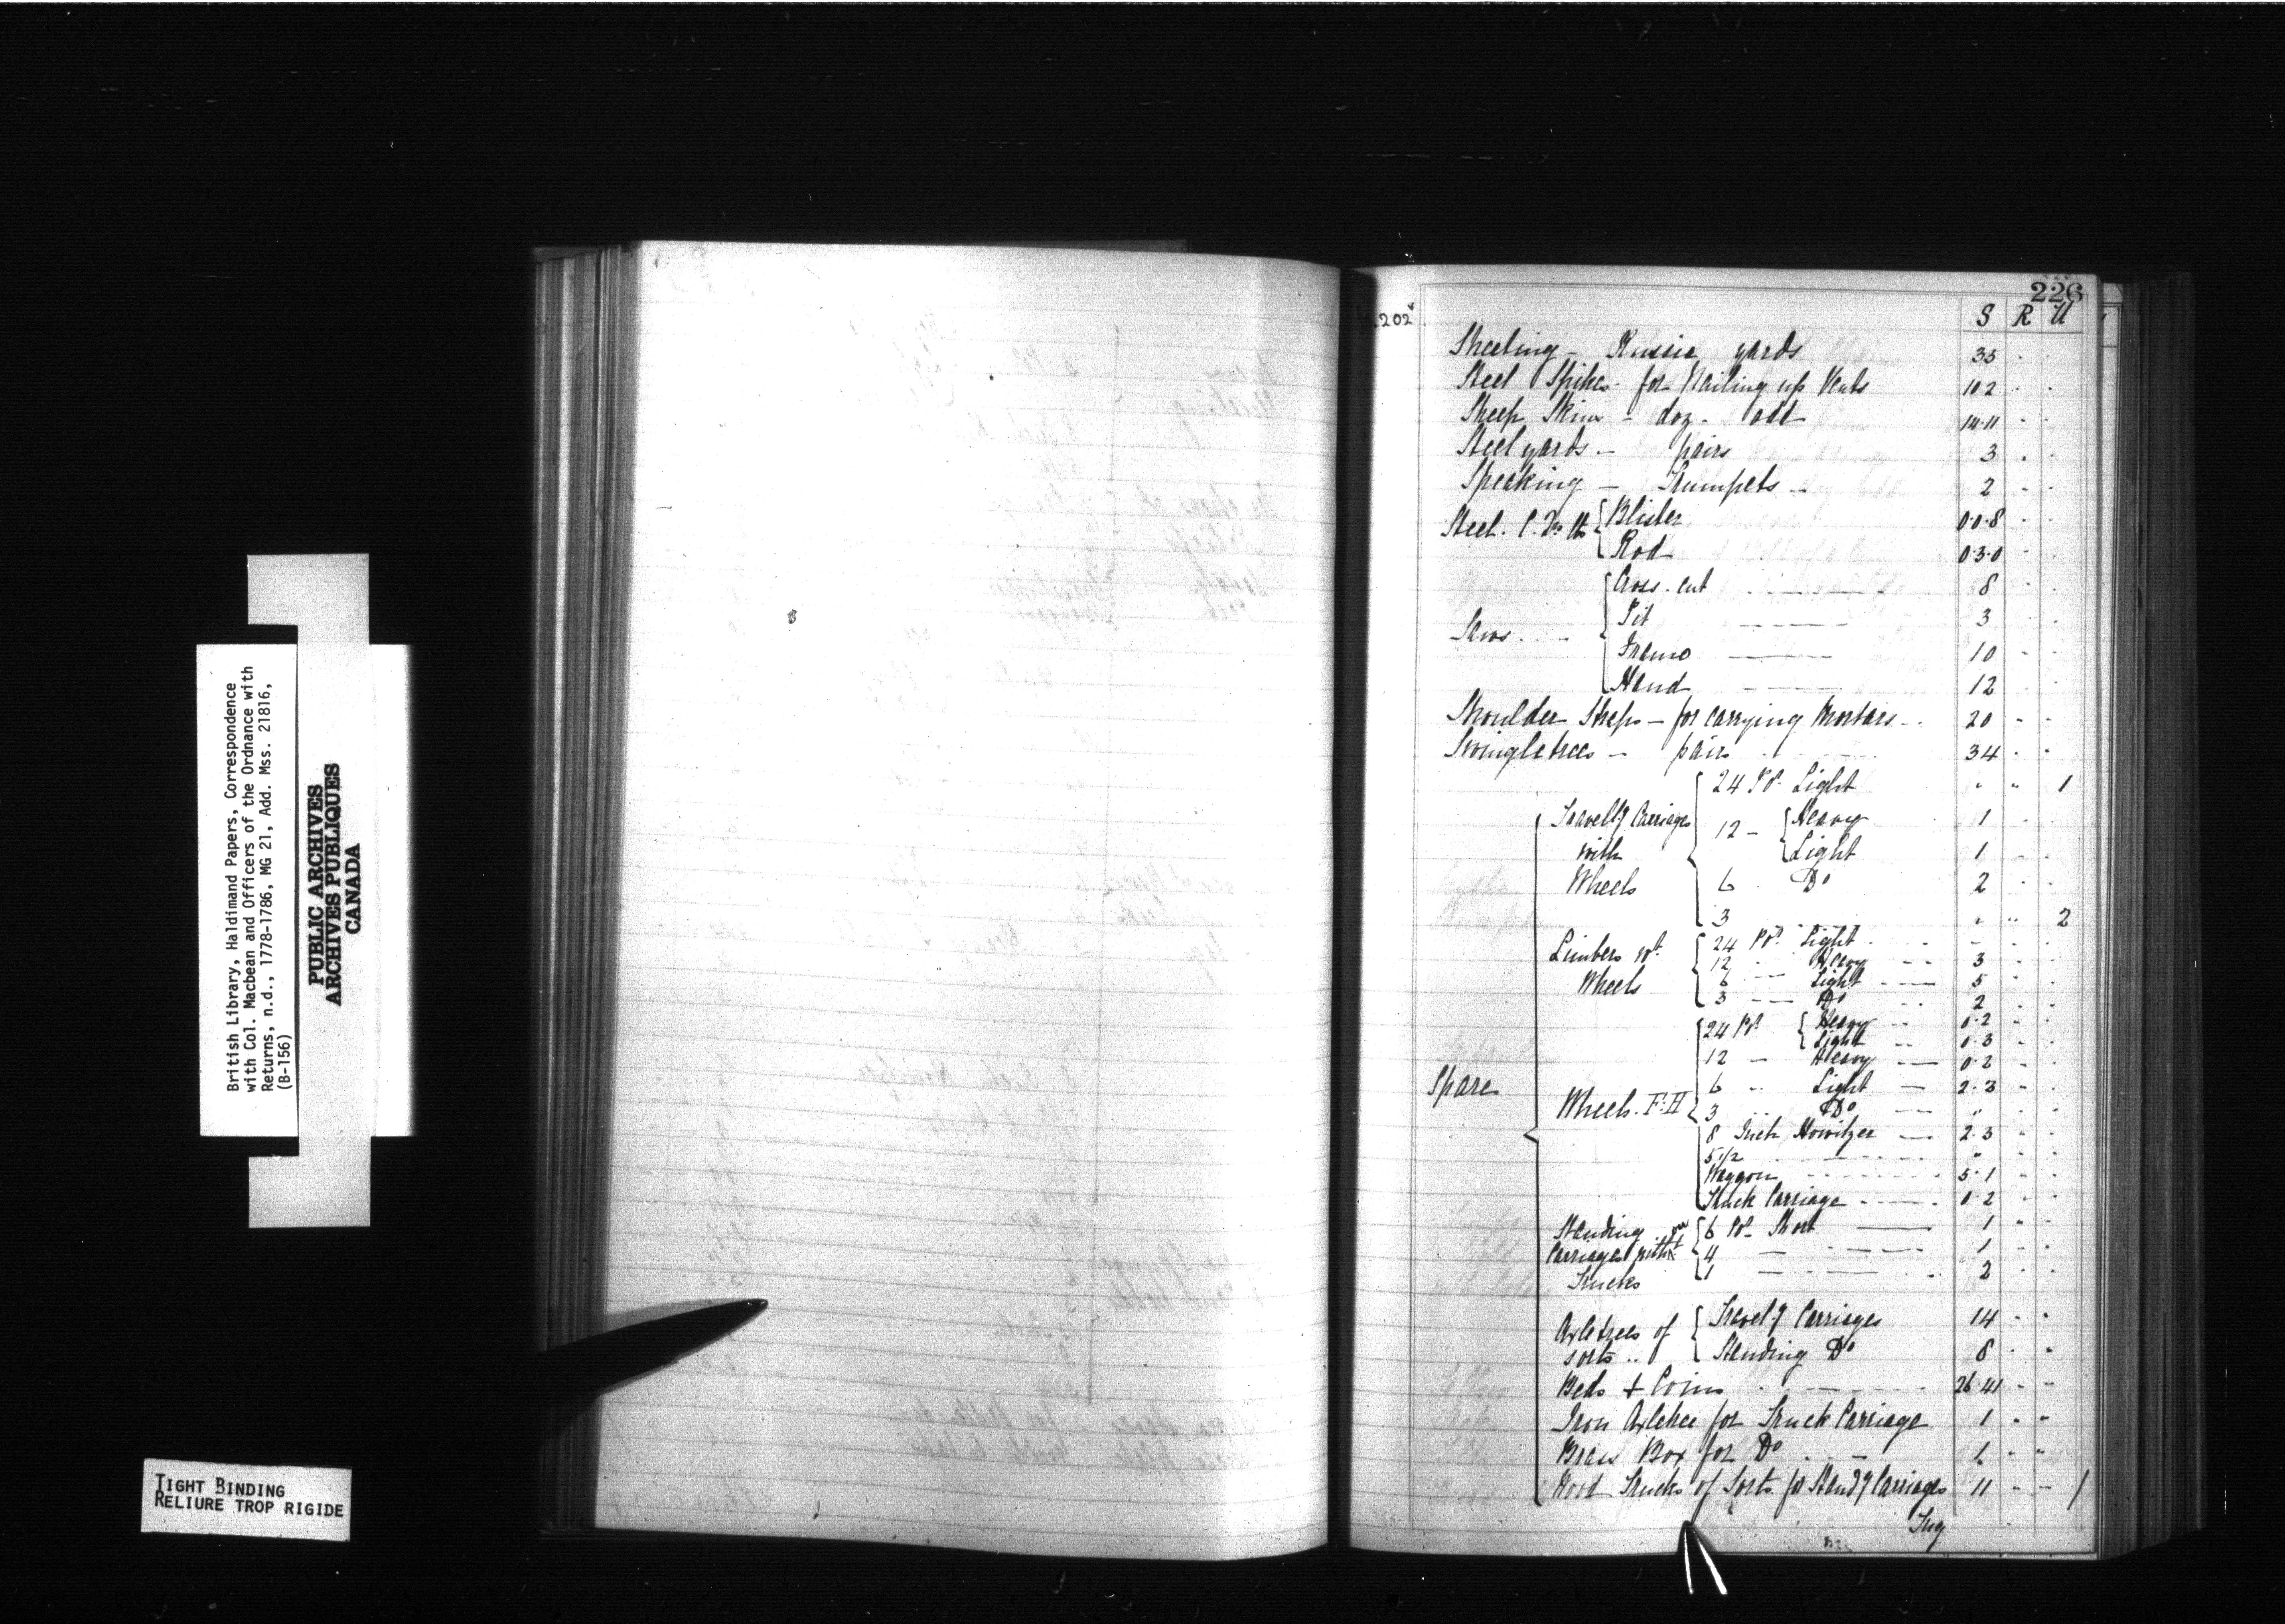 British Library, Haldimand Papers, Correspondence
with Col. Macbean and Officers of the Ordnance with
Returns, n.d., 1778-1786, MG 21, Add. Mss. 21816,
(B-156)
PUBLIC ARCHIVES
ARCHIVES PUBLIQUES
CANADA
TIGHT BINDING
RELIURE TROP RIGIDE
226
202
S R U
Sheeting - Russia yards 35 . .
Steel Spikes - for Nailing up Vents 102 . .
Sheep Skins - doz - odd 14.11 - .
Steelyards - pairs 3 . .
Speaking - Trumpets - 2 - .
Steel. C. Qrs lb { Blister 0.0.8 . .
Rod 0.3.0 .
Saws { Cross-cut 8 . .
Pit 3 . .
Frame 10 - .
Hand 12 . .
Shoulder Straps - for carrying Mortars 20 - -
Swingletrees - pairs 34 . .
Spare
Travellg Carriages with Wheels { 24 Pr. Light " " 1
12 - { Heavy 1 . .
Light 1 - .
6 Do 2 . .
3 " " 2
Limbers wt. Wheels { 24 Pr. Light - . .
12 Heavy 3 . .
6 - Light 5 . .
3 - Do 2 . .
Wheels. F:H { 24 Pr { Heavy 0.2 - .
Light 0.3 - .
12 - Heavy 0.2 - .
6 " Light 2.3 " .
3 Do " . .
8 Inch Howitzer 2.3 - .
5 1/2 " . .
Waggon 5.1 - .
Truck Carriage 0.2 - .
Standing Carriages with Trucks { 6 Pr - Short 1 " .
4 1 - .
1 2 . .
Axletrees of sorts .. { Travelg Carriages 14 - "
Standing Do 8 . "
Beds & Coins 26.41 - -
Iron Axletree for Truck Carriage 1 " "
Brass Box for Do 1 " "
Wood Trucks of Sorts for Standg Carriages 11 - - /